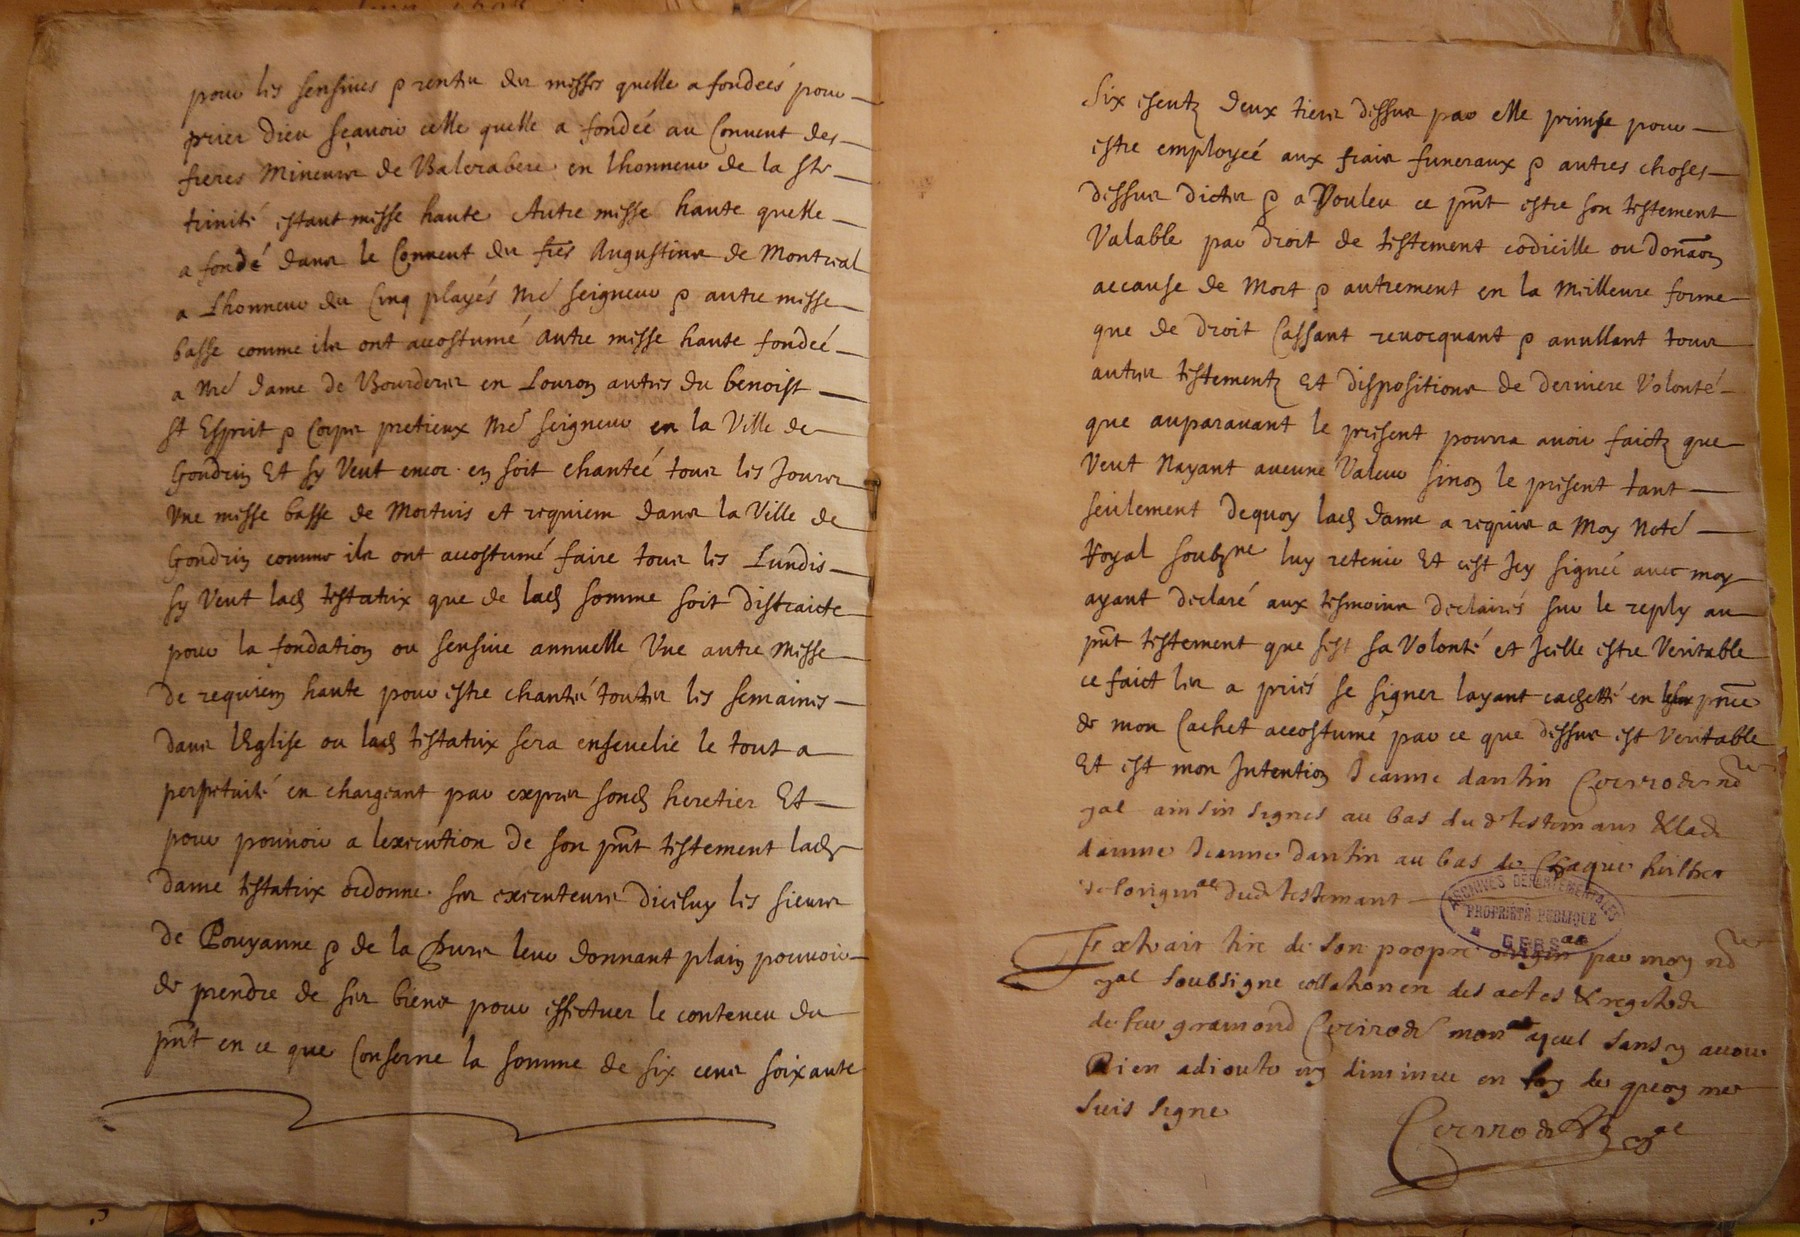 pour les sensives & rentes des messes quelle a fondeés pour
prier dieu sçavoir celle quelle a fondeé au Convent des
freres Mineurs de Valcrabere en lhonneur de la ste
trinité estant messe haute Autre messe haute quelle
a fondé dans le Convent des frēs Augustins de Montreal
a Lhonneur des Cinq playés nre seigneur & autre messe
basse comme ils ont accostumé autre messe haute fondeé
a nre dame de Bourderes en Louron autres du benoist
st Esprit & Corps pretieux nre seigneur en la Ville de
Gondrin Et sy Veut encor en soit chanteé tous les Jours
Une messe basse de Mortuis et requiem dans la Ville de
Gondrin comme ils ont accostumé faire tous les Lundis
sy Veut lade testatrix que de lade somme soit distraicte
pour la fondation ou sensive annuelle Une autre Messe
de requiem haute pour estre chanteé toutes les semaines
dans lEglise ou lade testatrix sera ensevelie le tout a
perpetuité en chargeant par expres sond heretier Et
pour pourvoir a lexecution de son pnt testement lade
dame testatrix ordonne ses executeurs diceluy les sieurs
de Pouyanne & de la leur donnant plain pouvoir
de prendre de ses biens pour effectuer le conteneu du
pnt en ce que Conserne la somme de six cens soixante
six escutz deux tiers dessus par elle prinse pour
estre employeé aux frais funeraux & autres choses
dessus dictes & a Vouleu ce pnt estre son testement
Valable par droit de testement codicille ou donãon
accause de Mort & autrement en la Meilleure forme
que de droit Cassant revocquant & anullant tous
autres testementz Et dispositions de derniere Volonté
que auparavant le present pourra avoir faictz que
Veut Nayant aucune Valeur sinon le present tant
seulement dequoy lade dame a requis a Moy Noté
Royal soubzne luy retenir Et cest Icy signeé avec moy
ayant declaré aux tesmoins declairés sur le reply au
pnt testement que sest sa Volonté et Icelle estre Veritable
ce faict les a priés se signer layant cachetté en pnce
de mon Cachet accostumé par ce que dessus est Veritable
Et est mon Intention Jeanne dantin nore
yal ainsin signes au bas dud testemant & lade
damme Jeanne Dantin au bas de Chaque
de lorignal dud testemant
Extrait tire de son propre orignal par moy nore
yal soubsigne collationer des actes & registre
de feu gramond mon ayeul sans y avoir
Rien adjoute ny diminue en foy de quoy me
suis signe
ARCHIVES DÉPARTEMENTALES
PROPRIÉTÉ PUBLIQUE
GERS